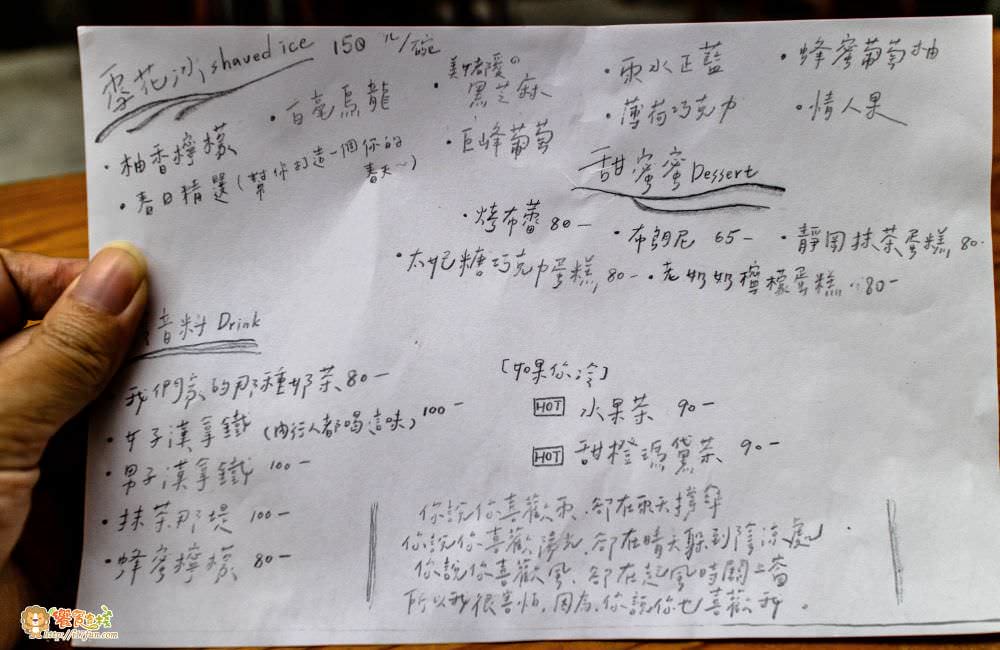 雪花冰 shaved ice 150元/碗
·柚香檸檬
·百毫烏龍
·春日精選(幫你打造一個你的春天~)
·美女都愛的黑芝麻
·巨峰葡萄
·雨水正藍
·薄荷巧克力
·蜂蜜葡萄柚
·情人果
甜蜜蜜 Dessert
·烤布蕾 80-
·布朗尼 65-
·靜岡抹茶蛋糕 80-
·太妃糖巧克力蛋糕 80-
·老奶奶檸檬蛋糕 80-
飲料 Drink
我們家的那種奶茶 80-
·女子漢拿鐵(內行人都喝這味) 100-
·男子漢拿鐵 100-
·抹茶那堤 100-
·蜂蜜檸檬 80-
[如果你冷]
HOT 水果茶 90-
HOT 甜橙瑪黛茶 90-
你說你喜歡雨,卻在雨天撐傘
你說你喜歡陽光,卻在晴天躲到陰涼處
你說你喜歡風,卻在起風時關上窗
所以我很害怕,因為,你說你也喜歡我。
http://ivyfun.com